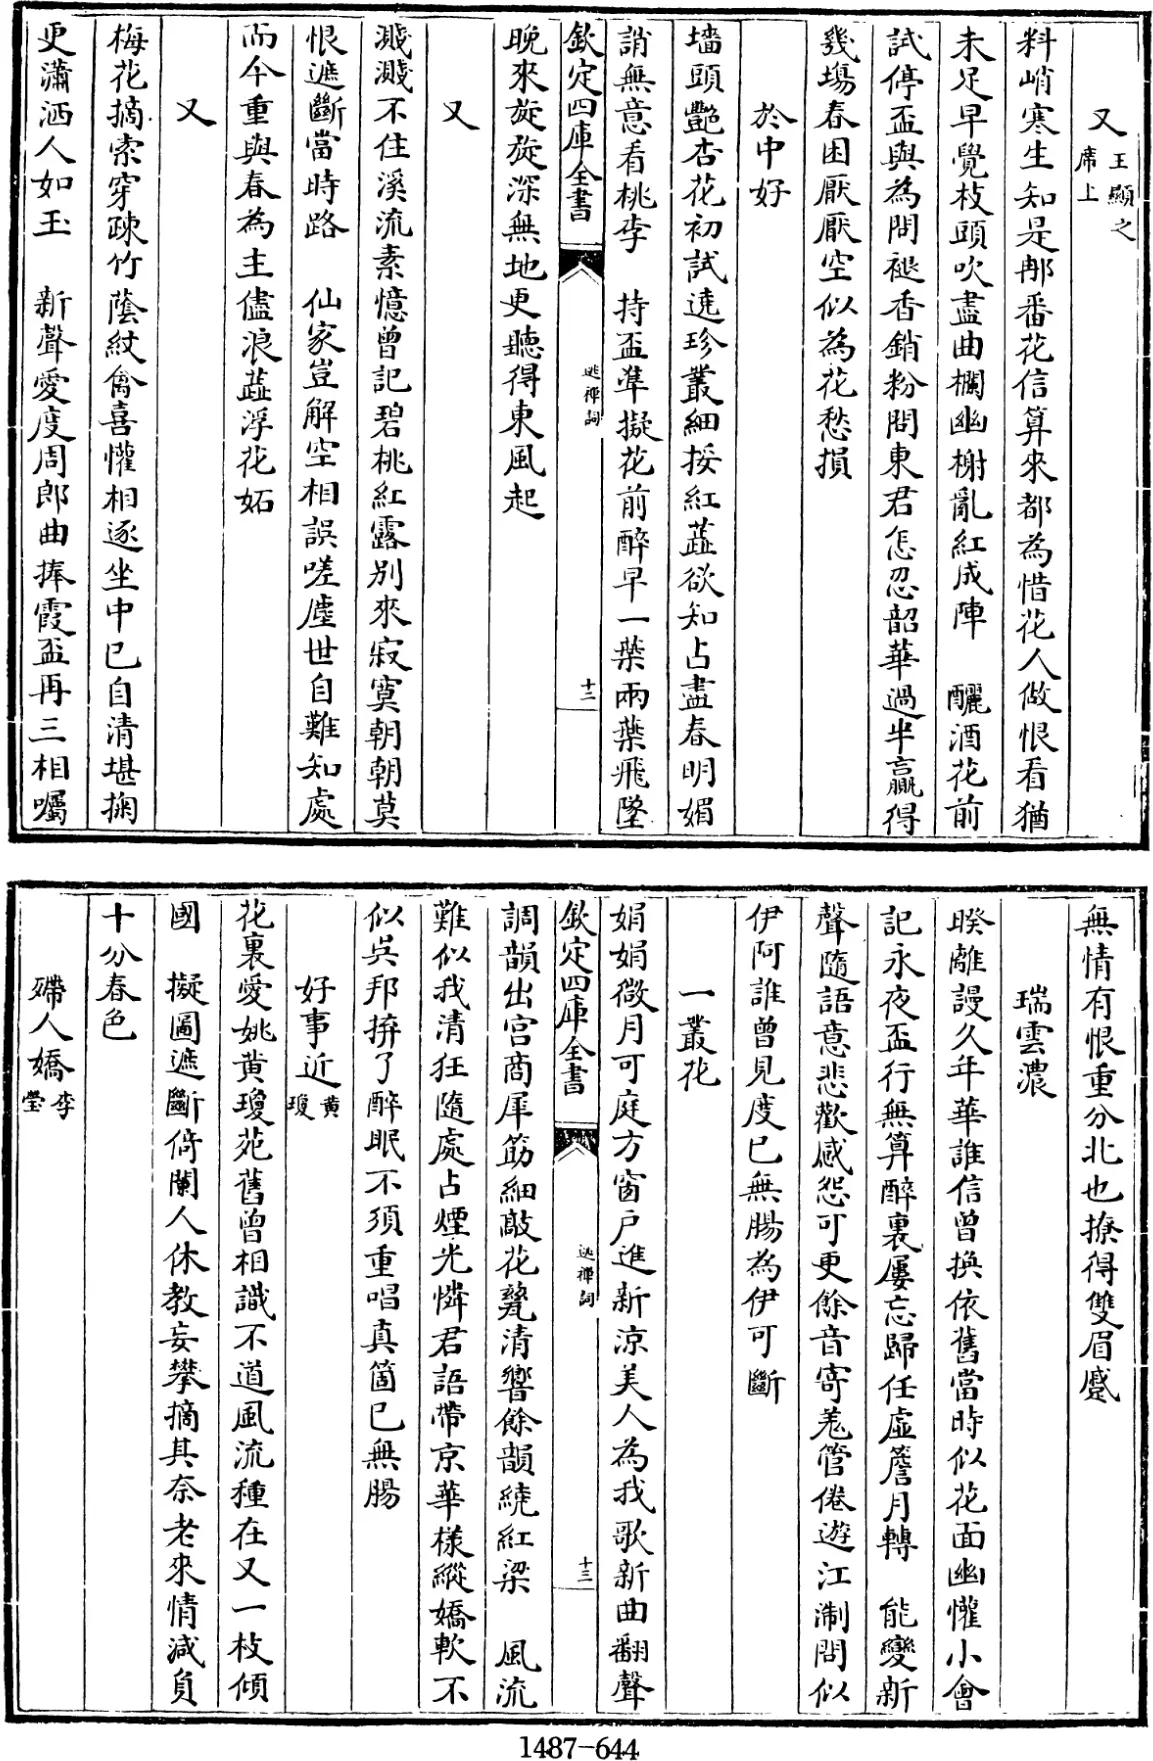 又王顯之席上
料峭寒生知是那番花信算來都為惜花人做恨看猶
未足早覺枝頭吹盡曲欄幽榭亂紅成陣　釃酒花前
試停盃與為問褪香銷粉問東君怎忍韶華過半贏得
幾場春困厭厭空似為花愁損
於中好
墻頭艷杏花初試遶珍叢細挼紅蘂欲知占盡春明媚
誚無意看桃李　持盃凖擬花前醉早一葉兩葉飛墜
欽定四庫全書　逃禪詞　十二
晚來旋旋深無地更聽得東風起
又
濺濺不住溪流素憶曾記碧桃紅露別來寂寞朝朝莫
恨遮斷當時路　仙家豈解空相誤嗟塵世自難知處
而今重與春為主儘浪蘂浮花妬
又
梅花摘索穿疎竹蔭紋禽喜懽相逐坐中已自清堪掬
更瀟洒人如玉　新聲愛度周郎曲捧霞盃再三相囑
無情有恨重分北也撩得雙眉蹙
瑞雲濃
暌離謾久年華誰信曾換依舊當時似花面幽懽小會
記永夜盃行無算醉裏屢忘歸任虛簷月轉　能變新
聲隨語意悲歡感怨可更餘音寄羗管倦遊江淛問似
伊阿誰曾見度已無腸為伊可斷
一叢花
娟娟微月可庭方窗戸進新涼美人為我歌新曲翻聲
欽定四庫全書　逃禪詞　十三
調韻出宫商犀筯細敲花甕清響餘韻繞紅梁　風流
難似我清狂隨處占煙光憐君語帶京華様縱嬌軟不
似吳邦拚了醉眠不須重唱真箇已無腸
好事近黄瓊
花裏愛姚黄瓊苑舊曾相識不道風流種在又一枝傾
國　擬圖遮斷倚闌人休教妄攀摘其奈老來情減負
十分春色
殢人嬌李瑩
1487-644